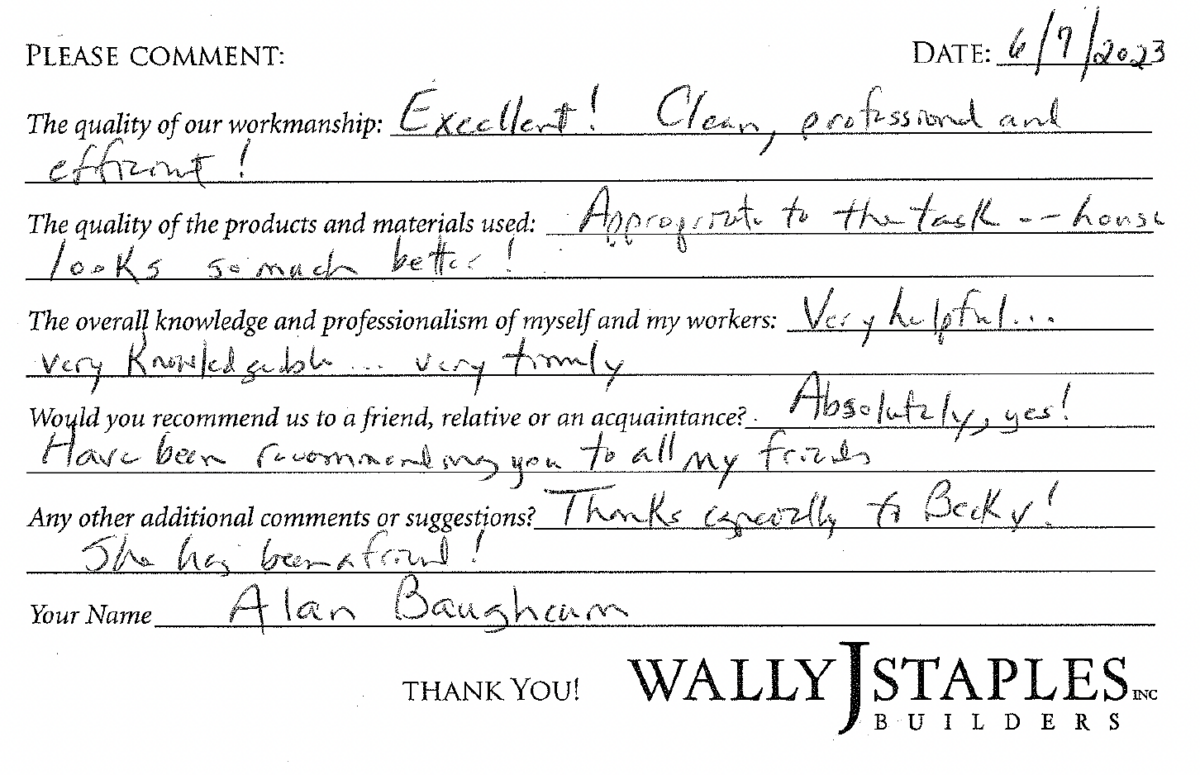 PLEASE COMMENT: DATE: 6/7/2023
The quality of our workmanship: Excellent! Clean, professional and
efficient!
The quality of the products and materials used: Appropriate to the task -- house
looks so much better!
The overall knowledge and professionalism of myself and my workers: Very helpful...
very knowledgeable ... very timely
Would you recommend us to a friend, relative or an acquaintance? Absolutely, yes!
Have been recommending you to all my friends
Any other additional comments or suggestions? Thanks especially to Becky!
She has been a friend!
Your Name Alan Baughcum
THANK YOU! WALLY J STAPLES INC
BUILDERS